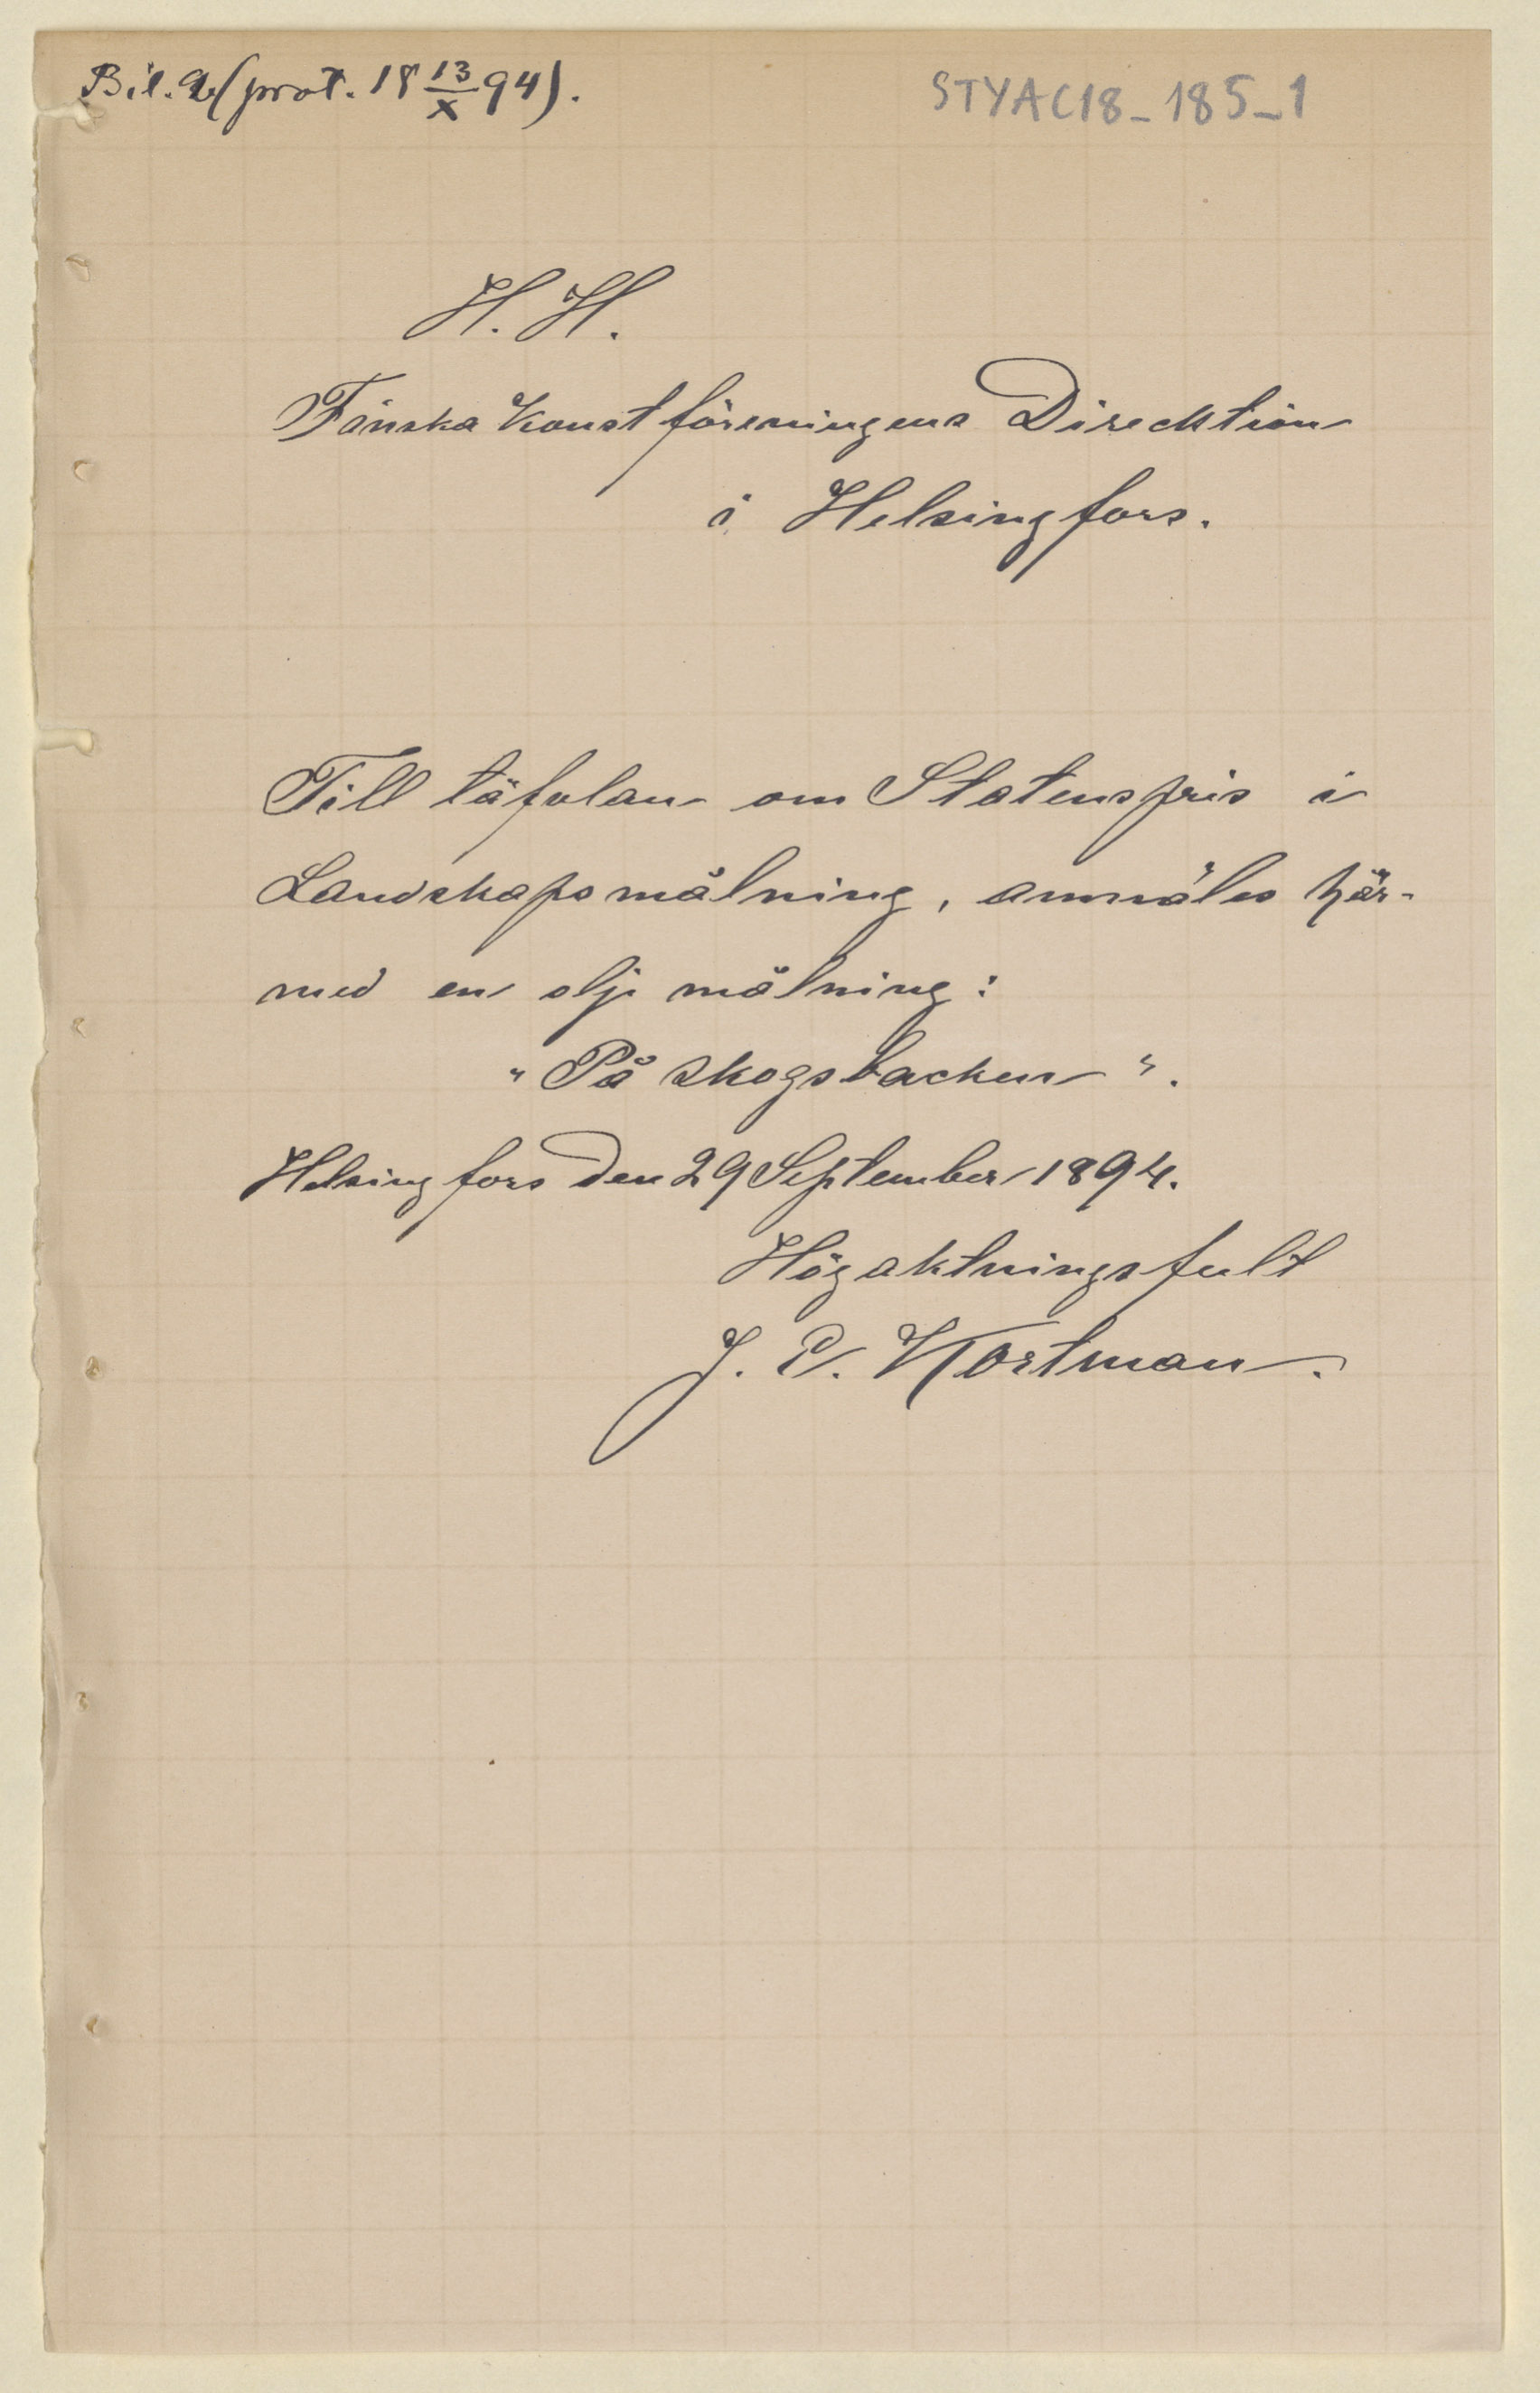 Bil. 2 (prot. 18 13/X 94).
STYAC18_185_1
H. H.
Finska Konstföreningens Direcktion
i Helsingfors.
Till täflan om Statenspris i
Landskapsmålning, anmäles här-
med en olje målning:
"På skogsbacken".
Helsingfors den 29 September 1894.
Högaktningsfullt
J. V. Kortman.